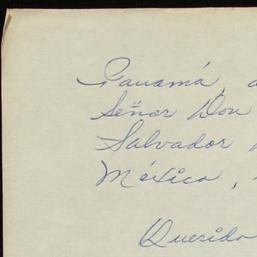 Panamá, a
Señor Don
Salvador
México,
Querido